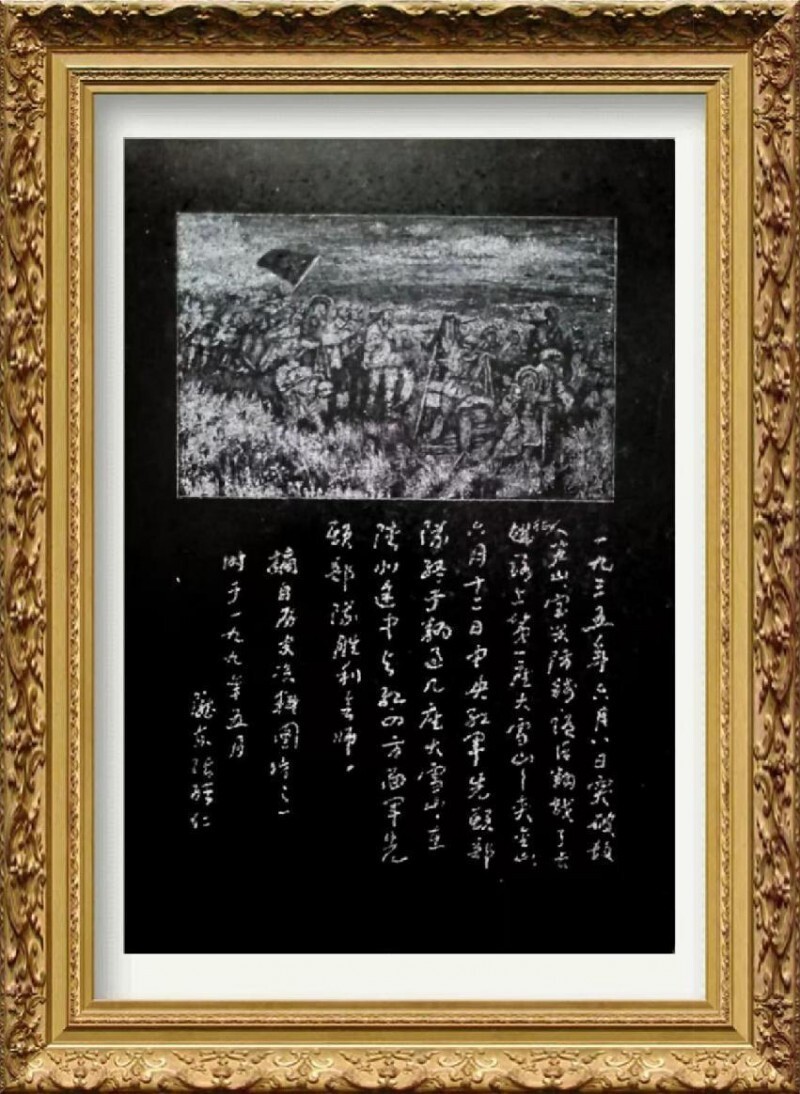 一九三五年六月八日突破敌
人芦山宝兴防线随后翻越了
路上第一座大雪山—夹金山
六月十二日中央红军先头部
队终于翻过几座大雪山，在
北途中与红四方面军先
头部队胜利会师。
摘自历史资料图片之一
时于一九九年五月
张仁